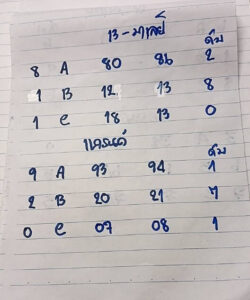 13 - มาเลย์
ดับ
8 A 80 86 2
1 B 12 13 8
1 C 18 13 0
แกรนด์
ดับ
9 A 93 94 1
2 B 20 21 7
0 C 07 08 1